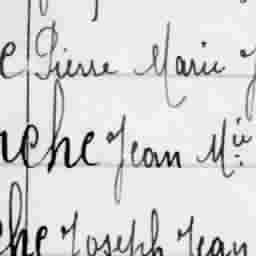 e Pierre Marie J
che Jean M.ie
che Joseph Jean